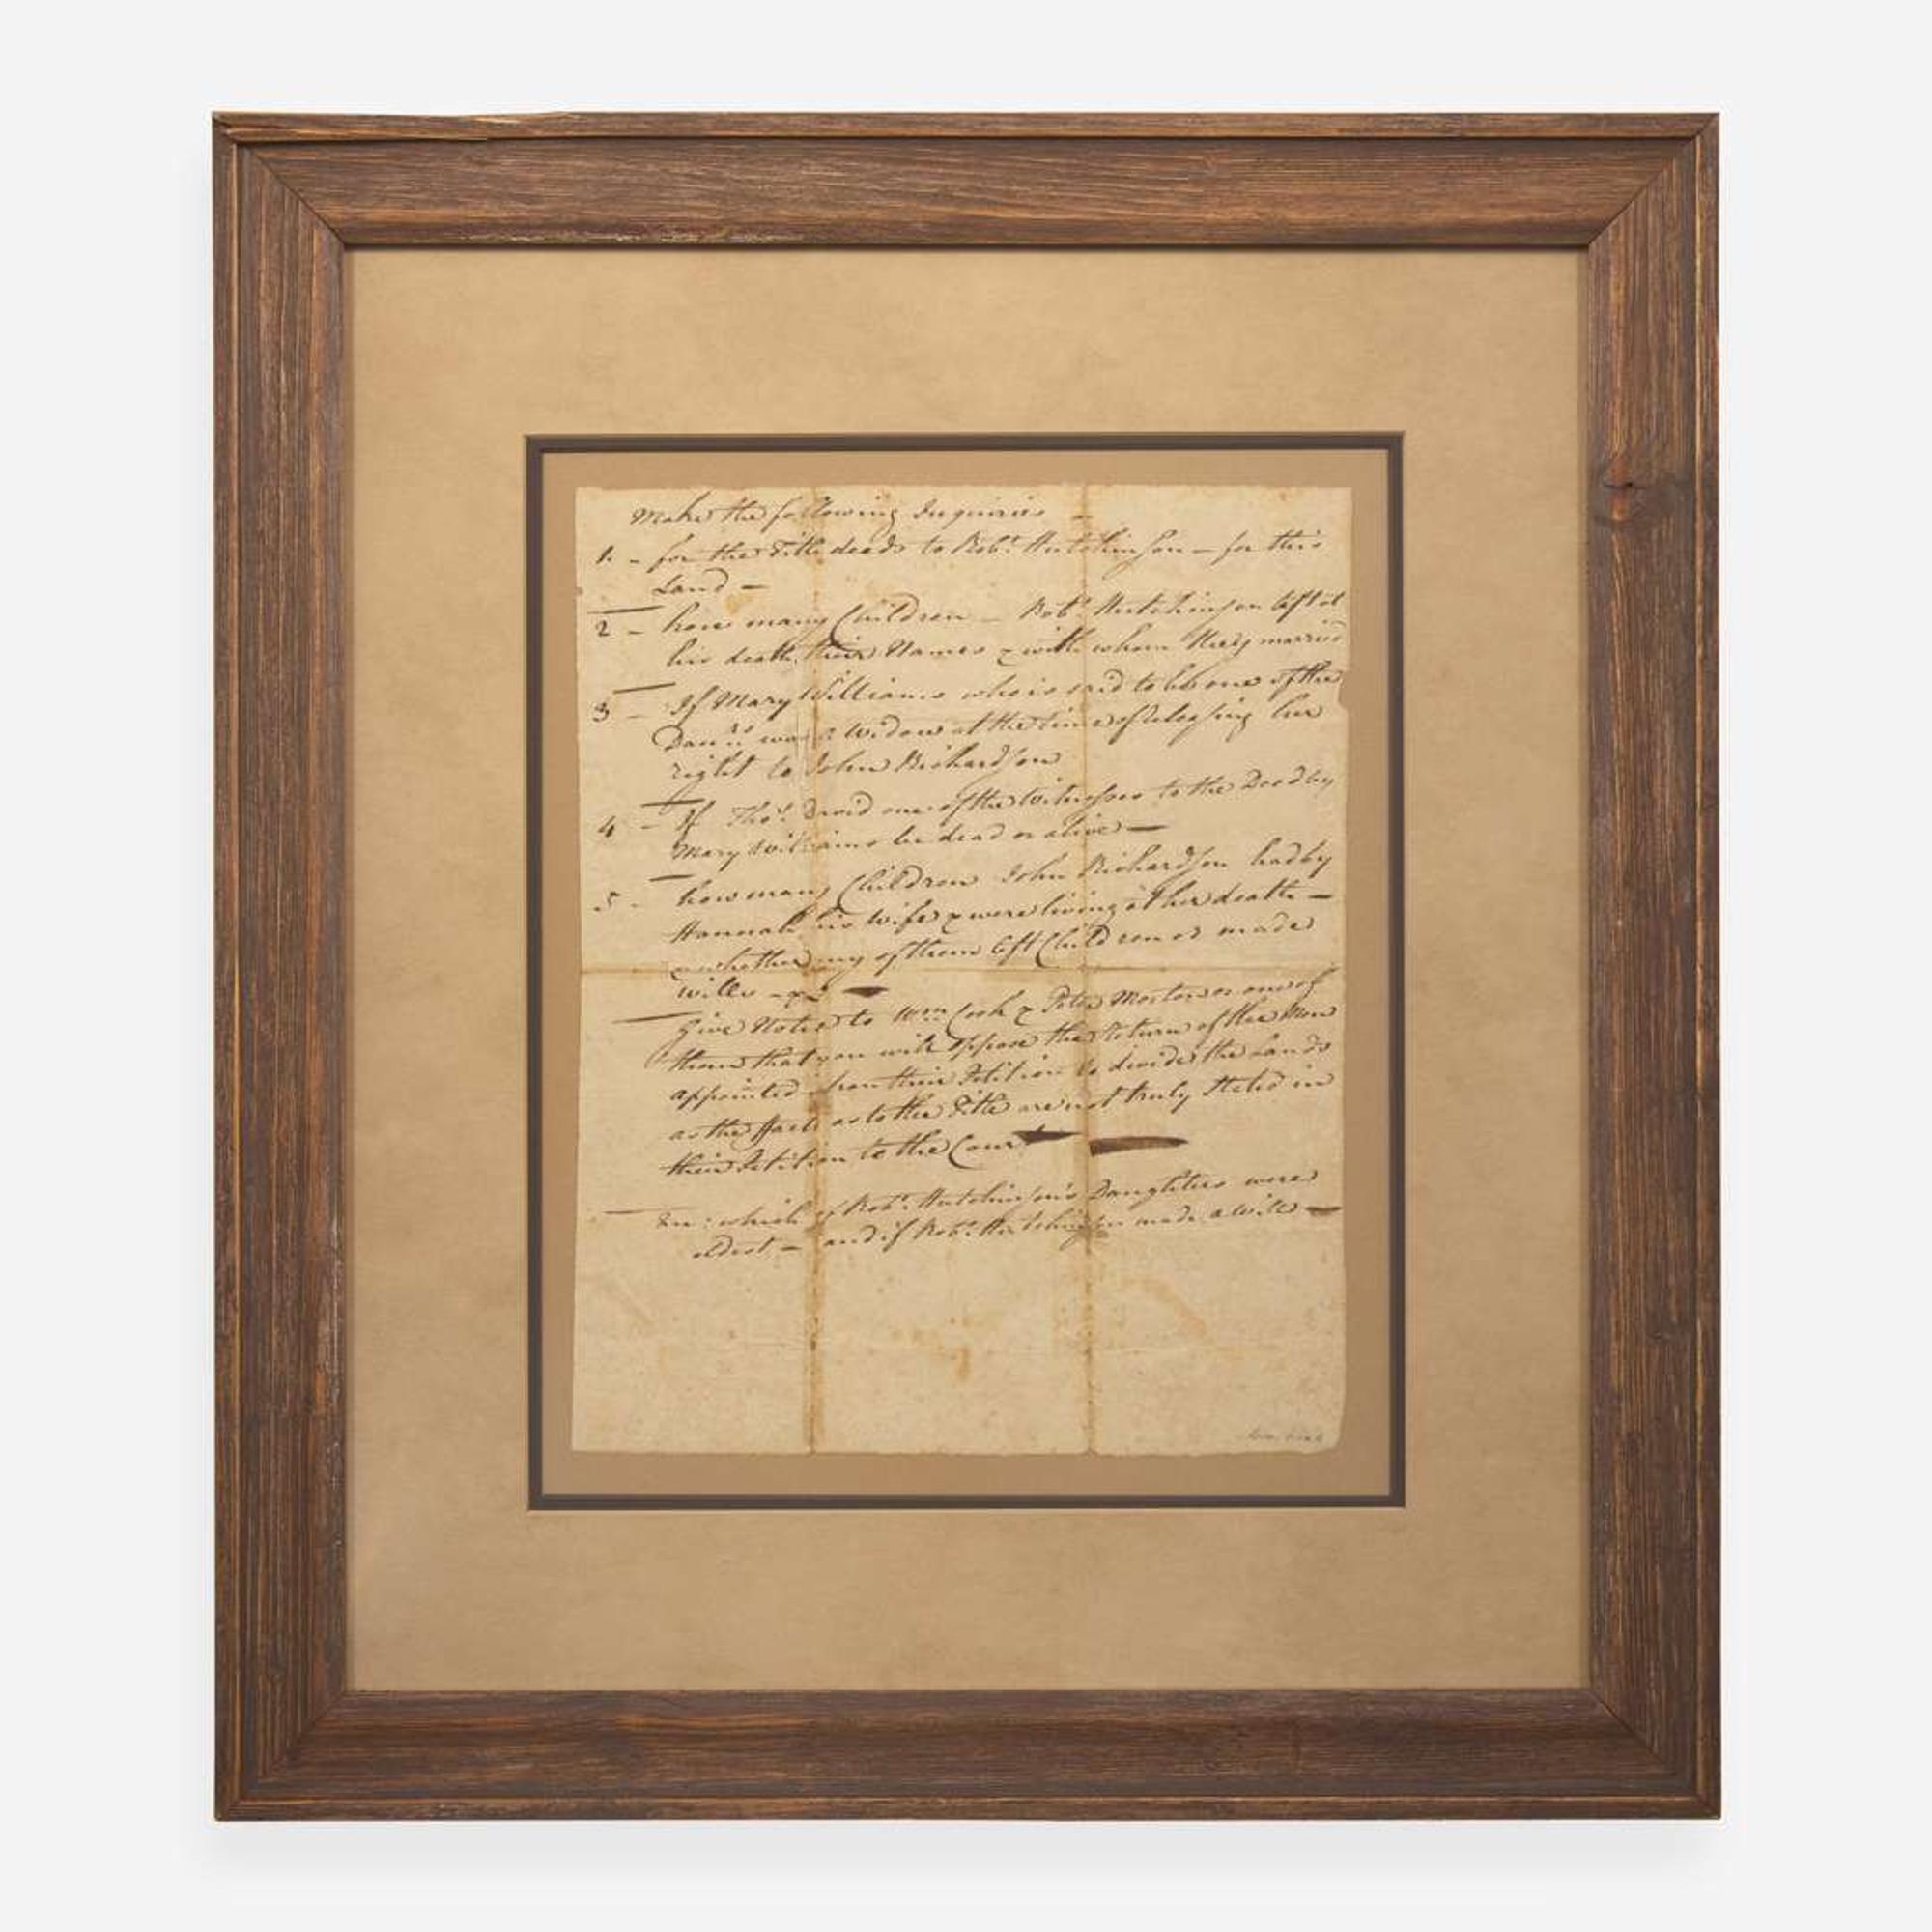 Make the following Inquiries —
1. – for the Title deeds to Rob.t Hutchinson – for this
Land —
2 – how many Children – Rob.t Hutchinson left at
his death, their Names & with whom they married
3 – If Mary Williams who is said to be one of the
Dau.rs was a Widow at the time of releasing her
right to John Richardson
4 – If Tho.s David one of the Witnesses to the Deed by
Mary Williams be dead or alive —
5 – how many Children John Richardson had by
Hannah his Wife & were living at her death —
& whether any of them left Children or made
wills – &c —
Give Notice to Wm Cook & Peter Merton or one of
them that you will oppose the Return of the Men
appointed upon their Petition to divide the Lands
as the facts as to the Title are not truly Stated in
their Petition to the Court —
which of Rob.t Hutchinson's Daughters were
oldest – and if Rob.t Hutchinson made a will —